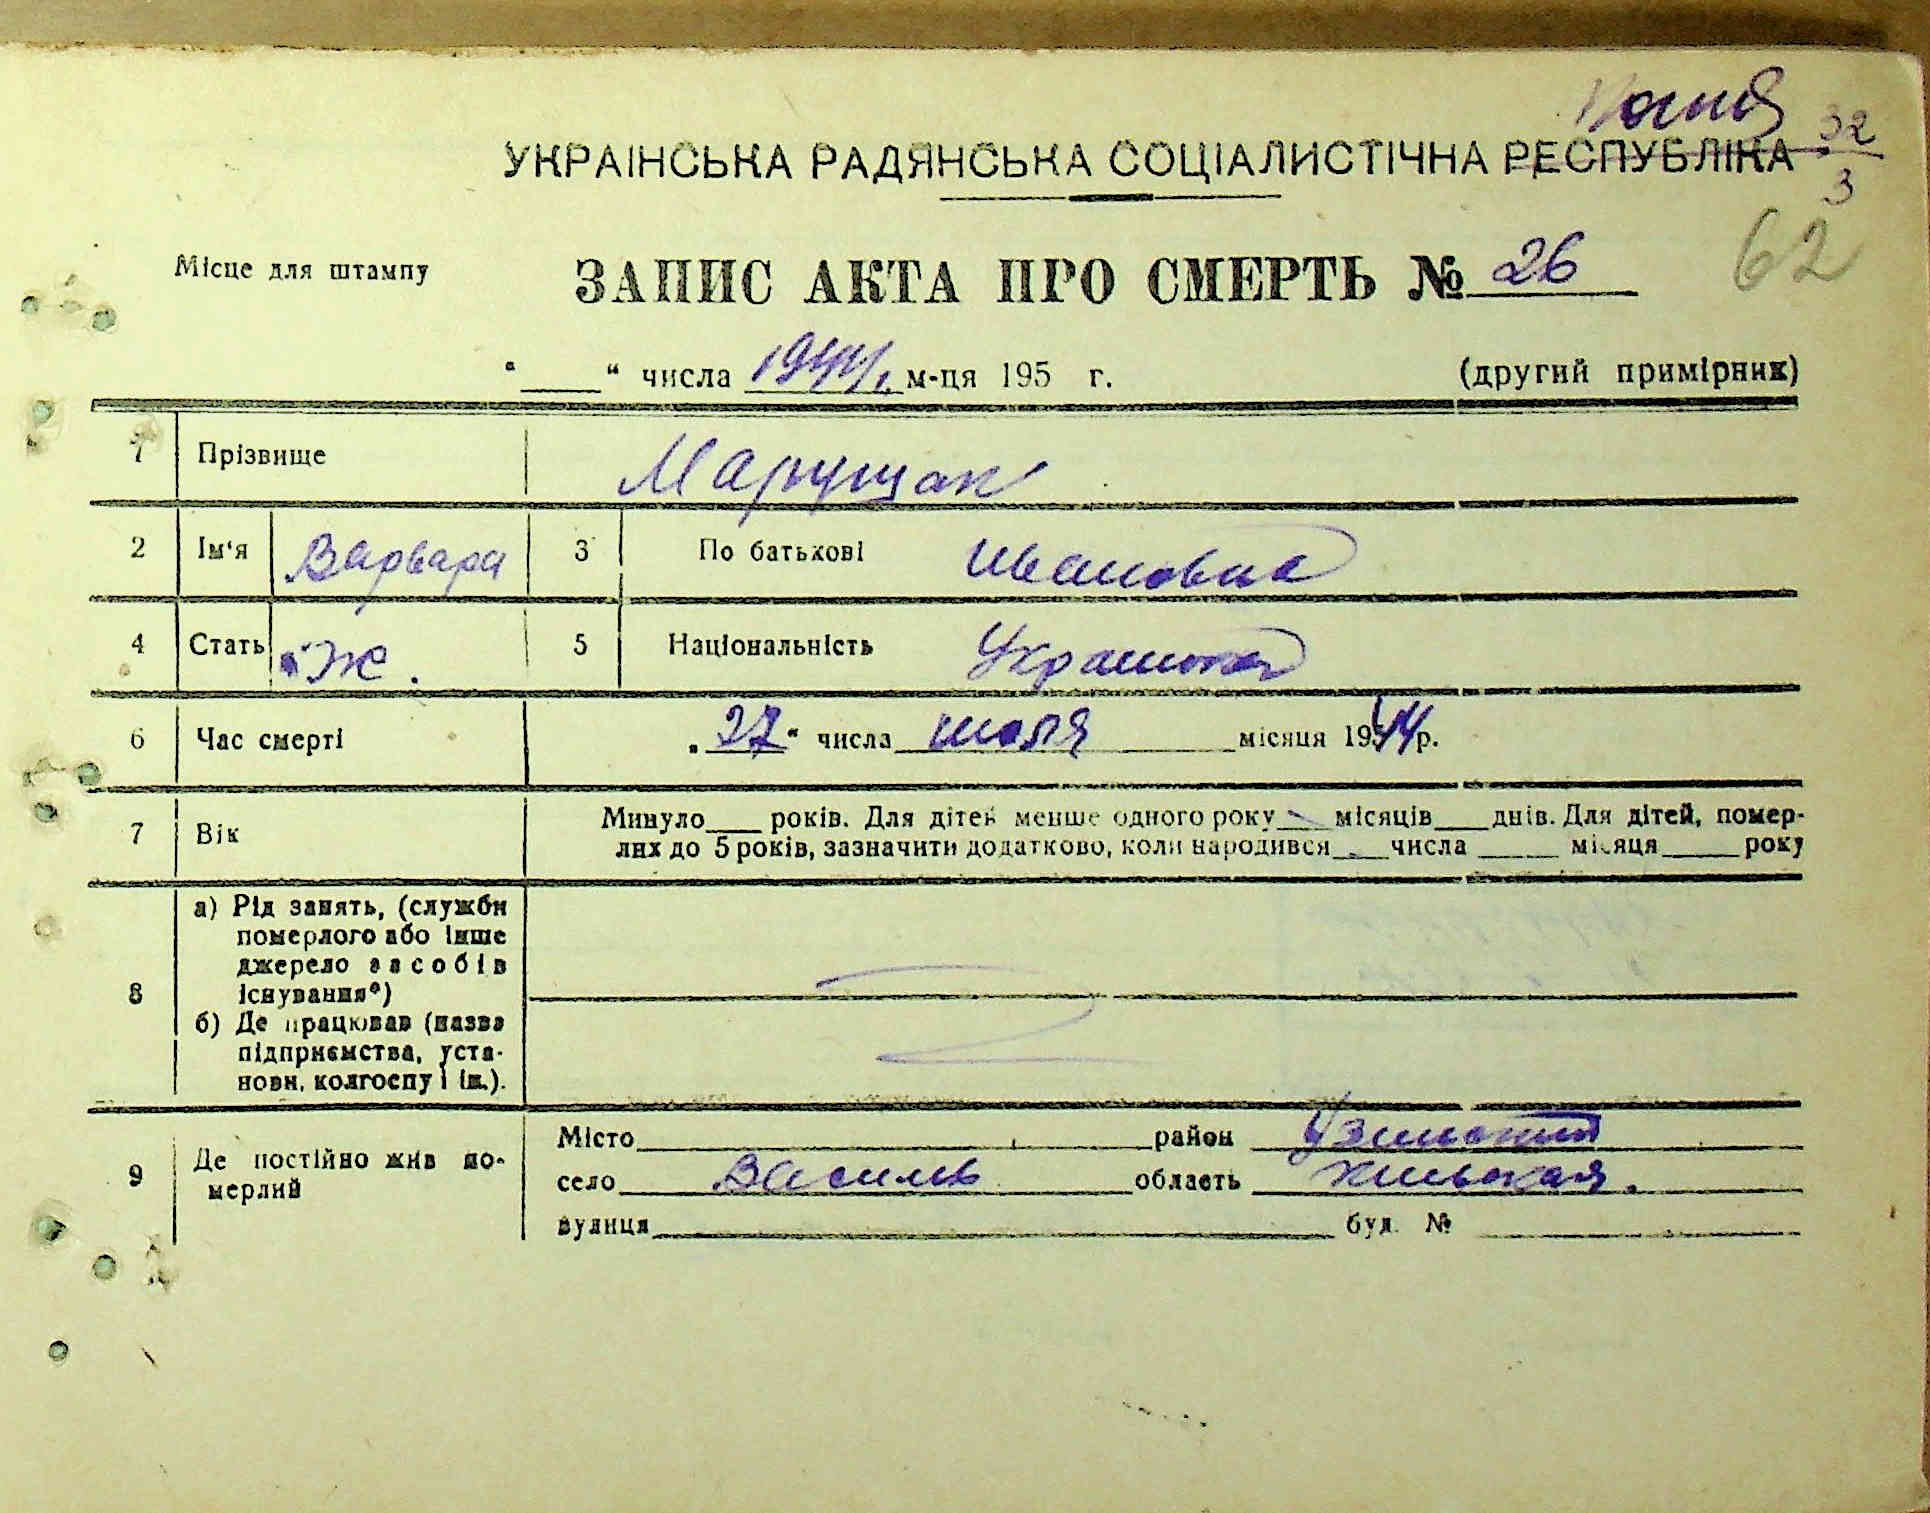 Копия
32
УКРАІНСЬКА РАДЯНСЬКА СОЦІАЛИСТІЧНА РЕСПУБЛІКА
3
Місце для штампу
ЗАПИС АКТА ПРО СМЕРТЬ № 26
62
"___" числа 1944 м-ця 195 г. (другий примірник)
1 Прізвище Марущак
2 Ім'я Варвара 3 По батькові Ивановна
4 Стать Ж. 5 Національність Украинка
6 Час смерті „27" числа июля місяця 1944р.
7 Вік Минуло___ років. Для дітей менше одного року___ місяців___ днів. Для дітей, помер-
лих до 5 років, зазначити додатково, коли народився___ числа ___ місяця ___ року
8 а) Рід занять, (служби
померлого або інше
джерело засобів
існування*)
б) Де працював (назва
підприємства, уста-
нови, колгоспу і ін.).
9 Де постійно жив по-
мерлий
Місто___ район Узинский
село Василів область Киевская.
вулиця___ буд. № ___